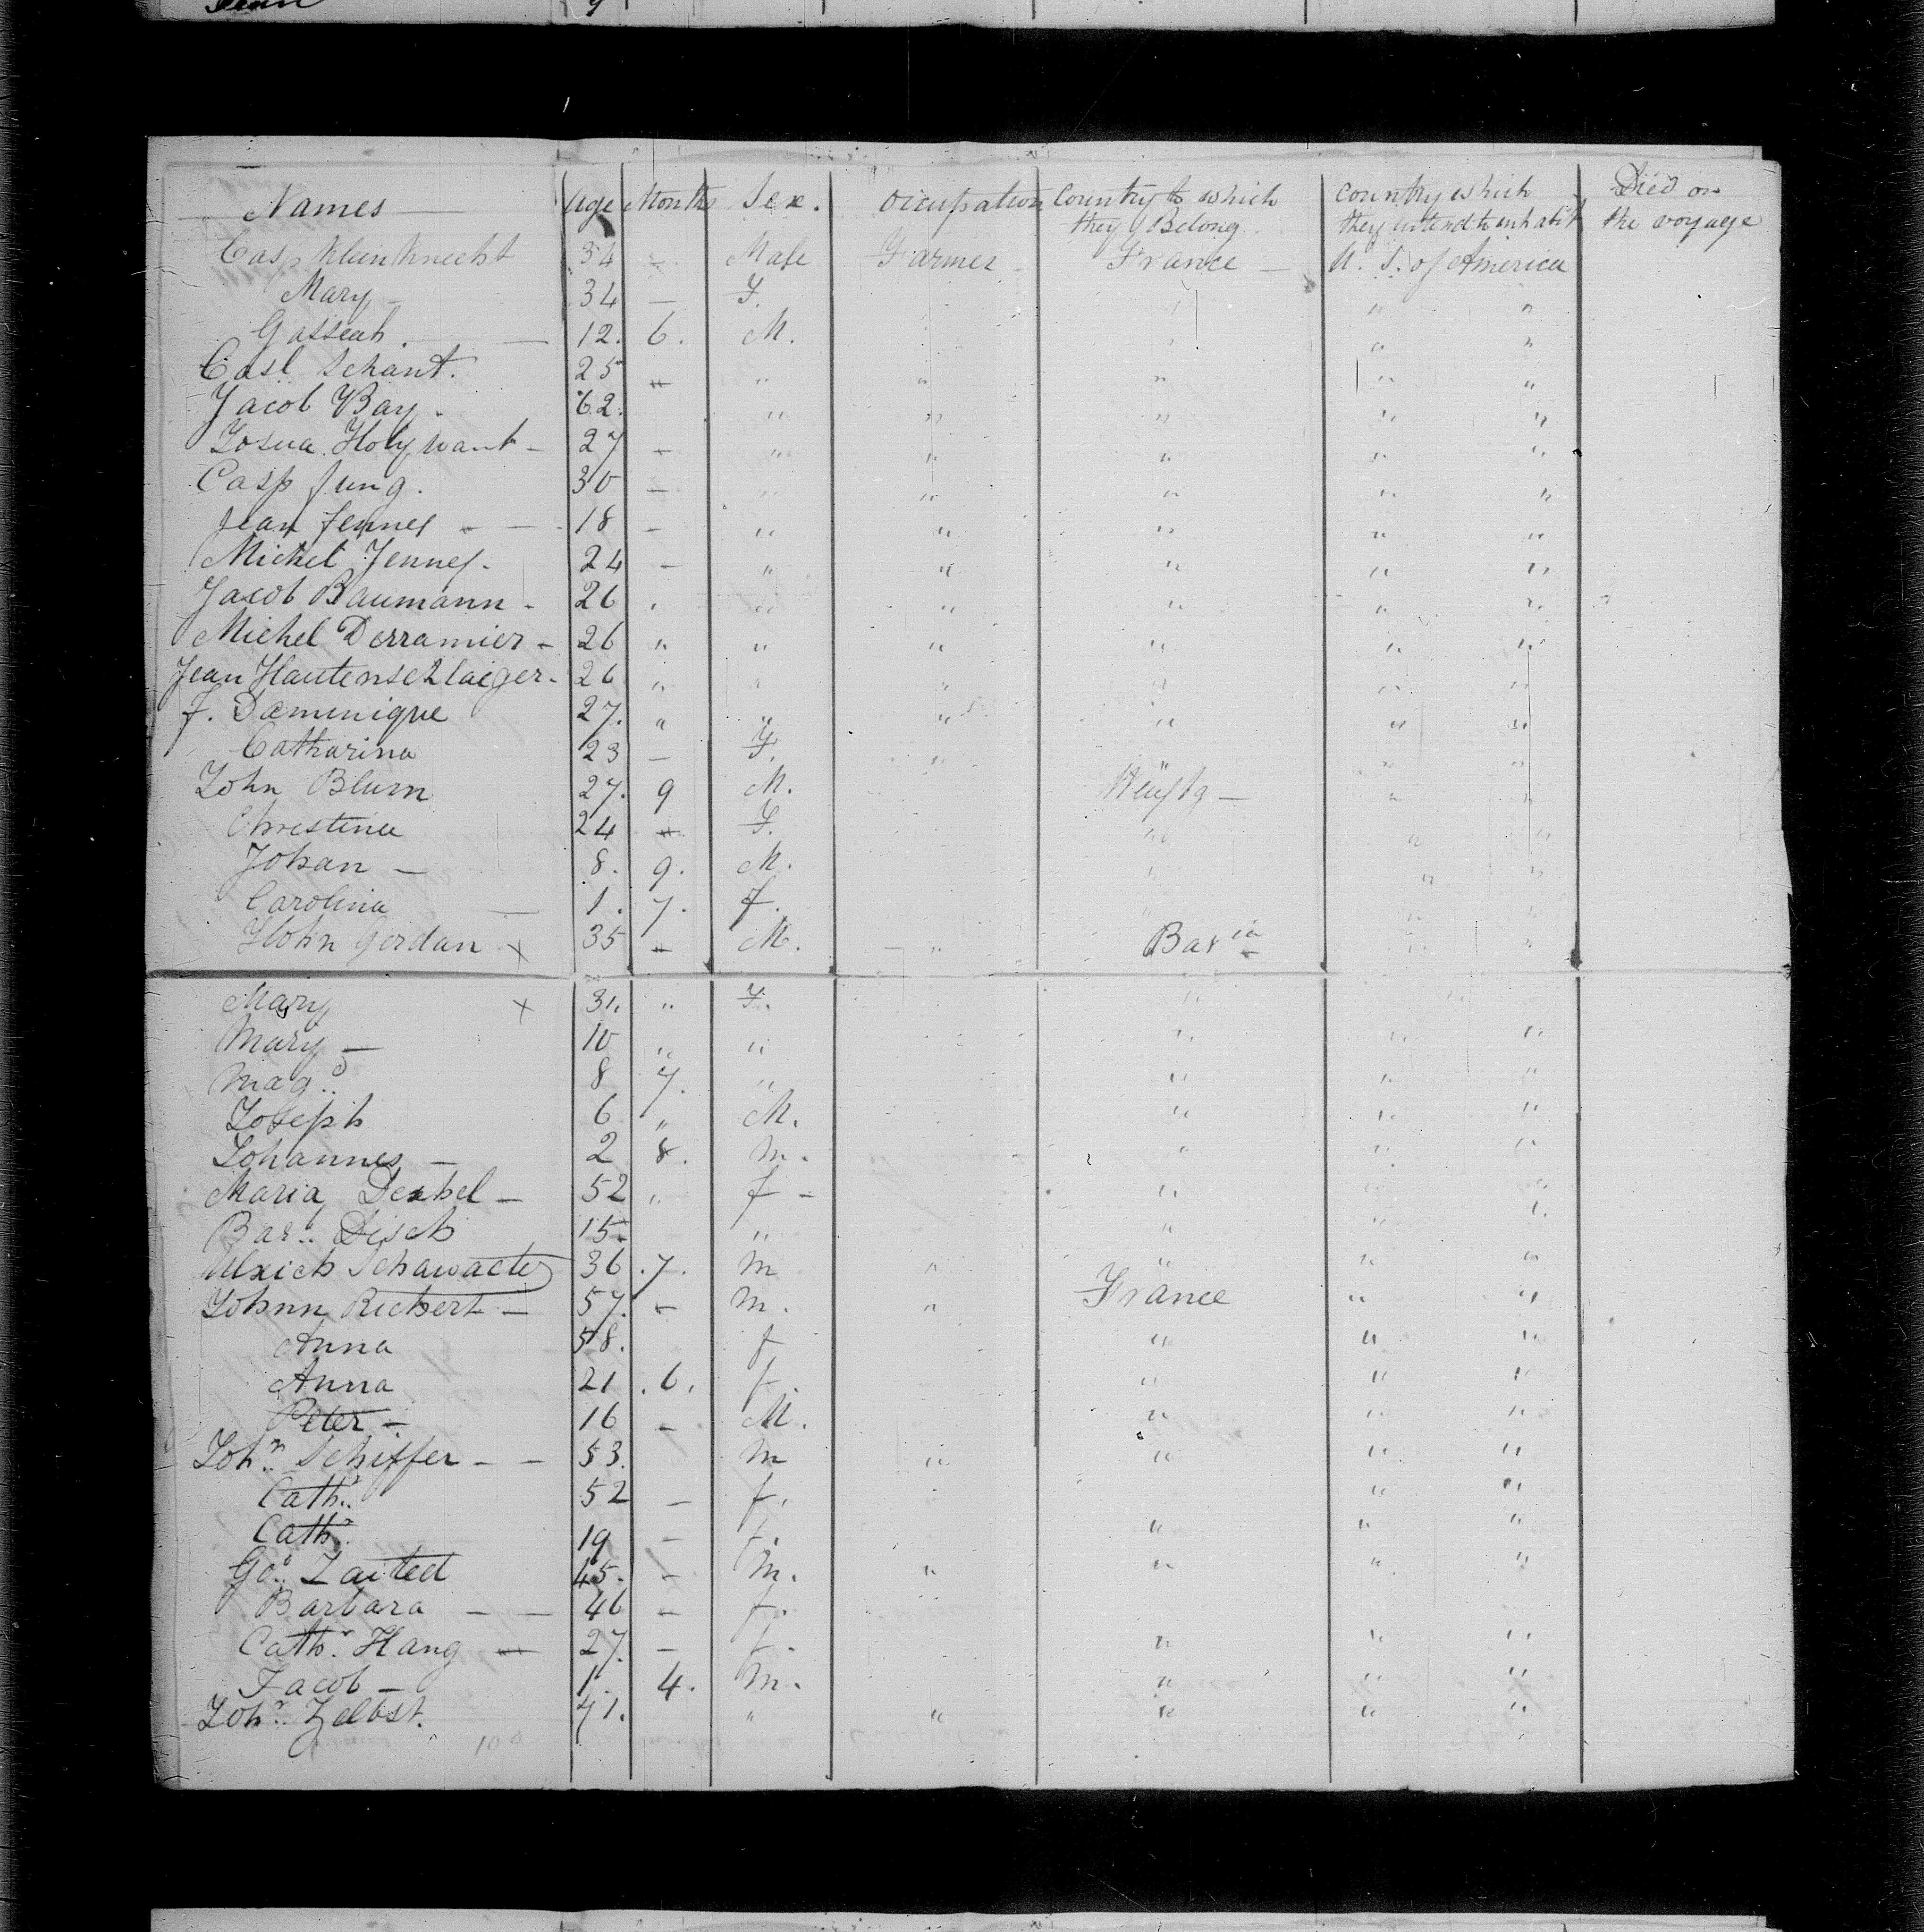 Names Age Months Sex. Occupation Country to which they Belong Country which they intend to inhabit Died on the voyage
Casp Kleinknecht 34 - Male Farmer - France - U. S. of America
Mary - 34 - F. " " "
12. 6. M. " " "
Schant. 25 " " " " " "
Jacob Bay. 62. " " " " "
Josua Holywant - 27 - " " " " "
Casp Jung. 30 - " " " " "
Jean Jenney - - 18 - " " " " "
Michel Jenney. 24 - " " " " "
Jacob Baumann - 26 " " " " " "
Michel Derramier - 26 " " " " " "
Jean Hautenschlaeger - 26 " " " " " "
J. Daminique 27. " " " " " "
Catharina 23 - F. " " " "
John Blum 27. 9 M. - " "
Christina 24 " F. " " "
Johan - 8. 9. M. " " "
Carolina - 1. 7. f. " " "
John Gordan x 35 " M. " Bavia " "
Mary x 31. " F. " "
Mary - 10 " " " " "
Mag.. 8 7. " " " "
Joseph 6 " M. " " "
Johannes - 2 8. m. " " "
Maria Dexhel - 52 " f - " " "
Bar.. Disch 15. " " " "
Ulrich Schawacter 36 .7. m " " " "
Johnn Richert - 57. - m. " France " "
Anna 58. f " " "
Anna 21 .6. f " " "
Peter - 16 - M. " " "
John.. Schiffer - - 53. m " " " "
Cath.. 52 - f. " "
Cath.. 19 - f. " " "
Go.. Zaited 45. - m. " " " "
Barbara - - 46 - f.
Cath.. Hang - 27. - f. " " "
Jacob - 1. 4. m. " " "
Joh.. Zelbst. 71. " " " " "
100